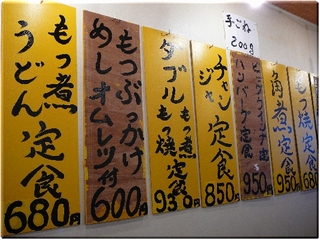 もつ煮
うどん定食
680円
もつぶっかけ
めしオムレツ付
600円
ダブルもつ煮
もつ焼定食
930円
チャン
ジャ定食
850円
手ごね
200g
ハンバーグ定食
950円
角煮定食
950円
もつ焼定食
680